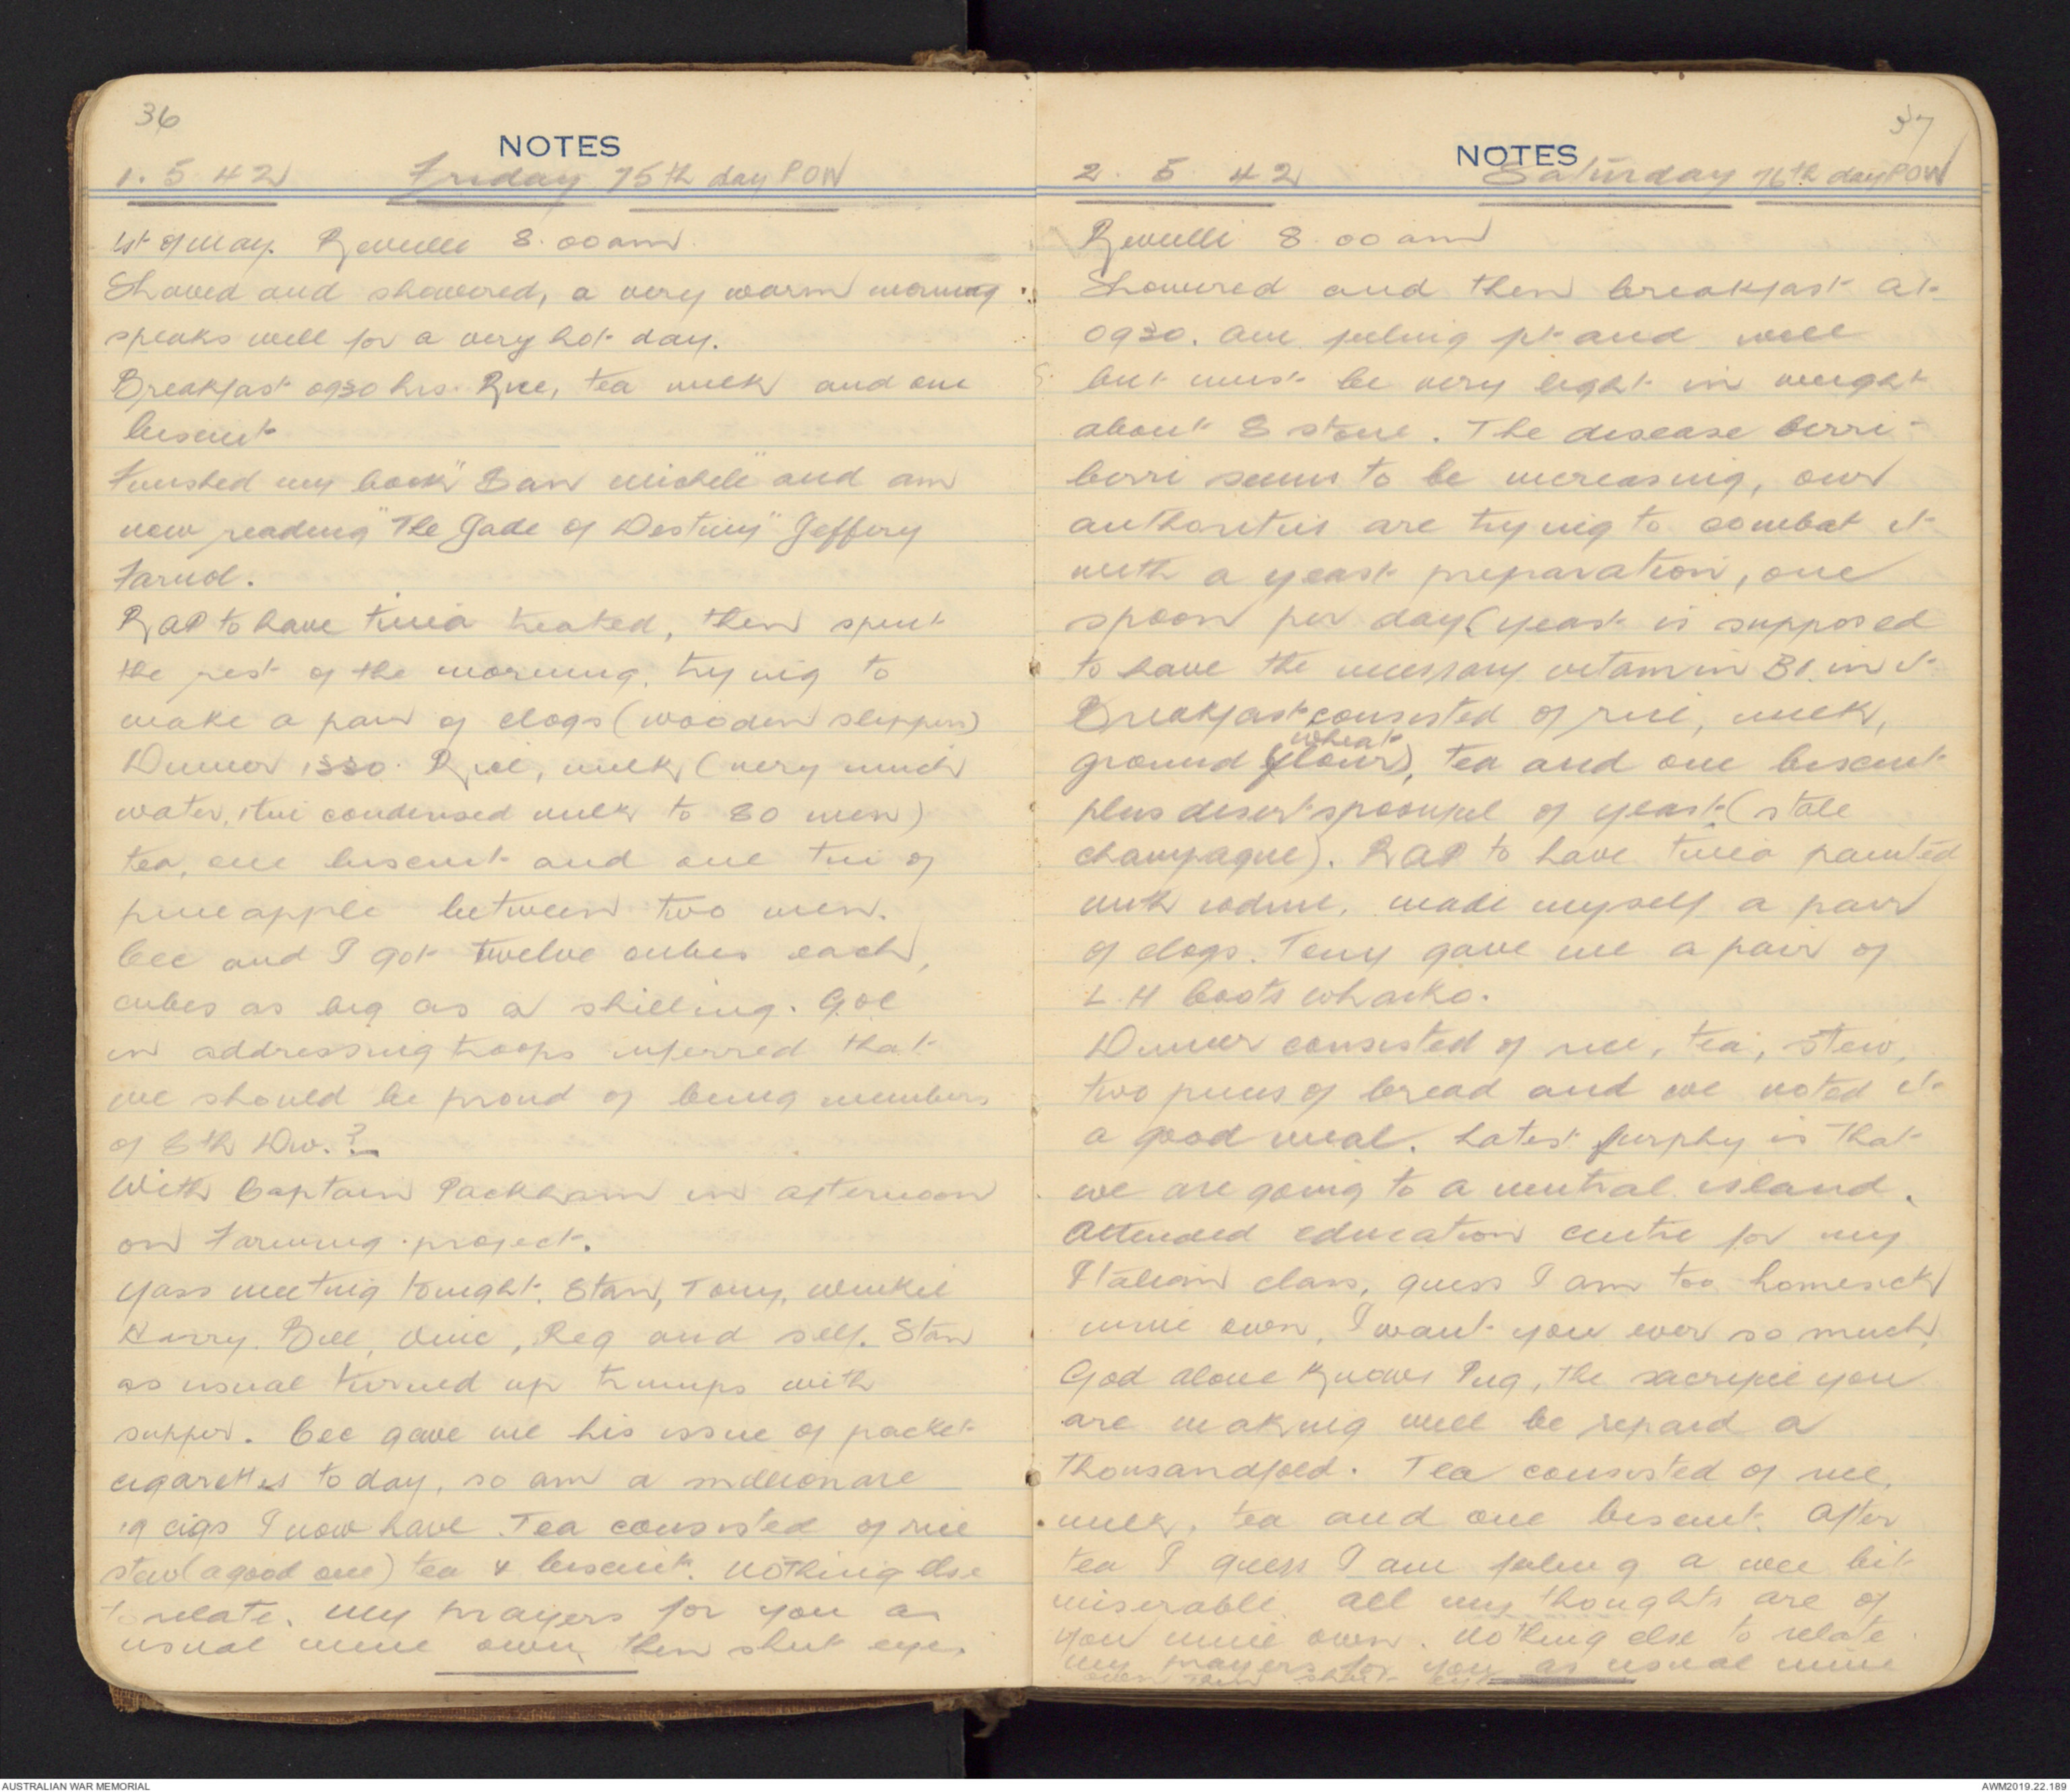 36
NOTES
1. 5 42 Friday 75th day POW
1st of May. Reveille 8.00am.
Shaved and showered, a very warm morning
speaks well for a very hot day.
Breakfast 0930 hrs. Rice, tea milk and one
biscuit
Finished my book "San Michele" and am
now reading "The Jade of Destiny" Jeffery
Farnol.
RAP to have tinea treated, then spent
the rest of the morning, trying to
make a pair of clogs (wooden slippers)
Dinner 1330. Rice, milk (very much
water, 1 tin condensed milk to 80 men)
tea, one biscuit and one tin of
pineapple between two men.
Cec and I got twelve cubes each,
cubes as big as a shilling. GOC
in addressing troops inferred that
we should be proud of being members
of 8th Div. ?
With Captain Packham in afternoon
on Farming project.
Yass meeting tonight. Stan, Tony, Winkie
Harry. Bill, Vine, Reg and self. Stan
as usual turned up trumps with
supper. Cec gave me his issue of packet
cigarettes today, so am a millionare
19 cigs I now have. Tea consisted of rice
stew (a good one) tea & biscuit. Nothing else
to relate. My prayers for you as
usual mine own, then shut eye.
37
NOTES
2. 5 42 Saturday 76th day POW
Reveilli 8.00am
Showered and then breakfast at
0930. Am feeling fit and well
but must be very light in weight
about 8 stone. The disease berri-
berri seems to be increasing, our
authorities are trying to combat it
with a yeast preparation, one
spoon per day (yeast is supposed
to have the necessary vitamin B1. in it
Breakfast consisted of rice, milk,
wheat
ground (flour), tea and one biscuit
plus desert spoonful of yeast (stale
champagne). RAP to have tinea painted
with iodine, made myself a pair
of clogs. Tony gave me a pair of
L.H boots whacko.
Dinner consisted of rice, tea, stew,
two pieces of bread and we voted it
a good meal. Latest furphy is that
we are going to a neutral island.
Attended education centre for my
Italian class, guess I am too homesick
mine own, I want you ever so much,
God alone knows Pug, the sacrifice you
are making will be repaid a
thousandfold. Tea consisted of rice,
milk, tea and one biscuit. After
tea I guess I am feeling a wee bit
miserable. All my thoughts are of
you mine own. Nothing else to relate.
My prayers for you as usual mine
own then shut eye
AUSTRALIAN WAR MEMORIAL
AWM2019.22.189